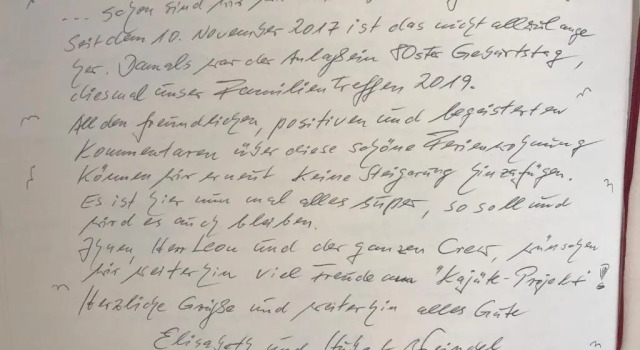 ... schon sind wir
Seit dem 10. November 2017 ist das nicht allzu lange
her. Damals war der Anlaß ein 80ster Geburtstag,
diesmal unser Familientreffen 2019.
All den freundlichen, positiven und begeisterten
Kommentaren über diese schöne Ferienwohnung
können wir erneut keine Steigerung hinzufügen.
Es ist hier nun mal alles super, so soll und
wird es auch bleiben.
Ihnen, Herr Leon und der ganzen Crew, wünschen
wir weiterhin viel Freude am "Kajüt-Projekt"!
Herzliche Grüße und weiterhin alles Gute
Elisabeth und